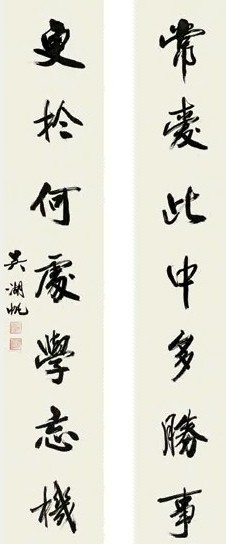 常愛此中多勝事
更於何處學忘機
吳湖帆